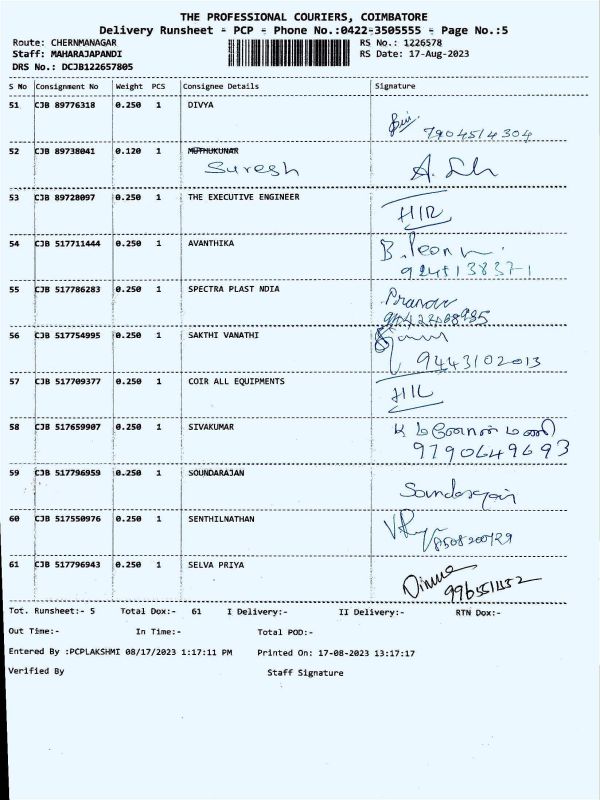 THE PROFESSIONAL COURIERS, COIMBATORE
Delivery Runsheet - PCP - Phone No.:0422-3505555 - Page No.:5
Route: CHERNMANAGAR RS No.: 1226578
Staff: MAHARAJAPANDI RS Date: 17-Aug-2023
DRS No.: DCJB122657805
S No Consignment No Weight PCS Consignee Details Signature
51 CJB 89776318 0.250 1 DIVYA
7904514304
52 CJB 89738041 0.120 1 MUTHUKUNAR
Suresh
53 CJB 89728097 0.250 1 THE EXECUTIVE ENGINEER
54 CJB 517711444 0.250 1 AVANTHIKA
55 CJB 517786283 0.250 1 SPECTRA PLAST NDIA
Pranav
56 CJB 517754995 0.250 1 SAKTHI VANATHI
9443102013
57 CJB 517709377 0.250 1 COIR ALL EQUIPMENTS
58 CJB 517659907 0.250 1 SIVAKUMAR
9790649693
59 CJB 517796959 0.250 1 SOUNDARAJAN
60 CJB 517550976 0.250 1 SENTHILNATHAN
61 CJB 517796943 0.250 1 SELVA PRIYA
Tot. Runsheet:- 5 Total Dox:- 61 I Delivery:- II Delivery:- RTN Dox:-
Out Time:- In Time:- Total POD:-
Entered By :PCPLAKSHMI 08/17/2023 1:17:11 PM Printed On: 17-08-2023 13:17:17
Verified By Staff Signature